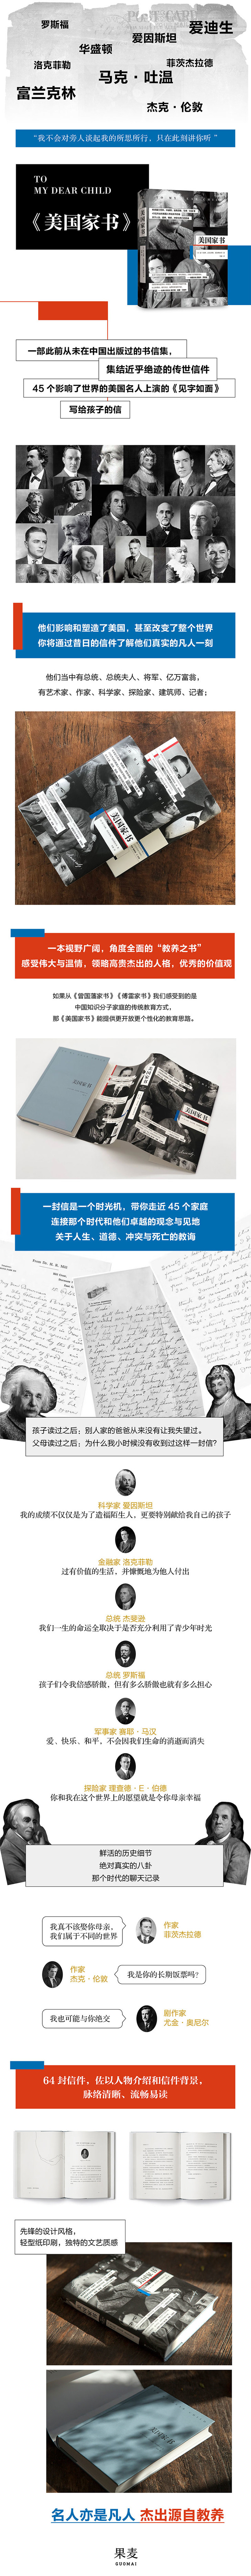 罗斯福
爱迪生
爱因斯坦
华盛顿
洛克菲勒
菲茨杰拉德
马克·吐温
富兰克林
杰克·伦敦
“我不会对旁人谈起我的所思所行，只在此刻讲你听”
TO
MY DEAR CHILD
《美国家书》
美国家书
一部此前从未在中国出版过的书信集，
集结近乎绝迹的传世信件
45 个影响了世界的美国名人上演的《见字如面》
写给孩子的信
他们影响和塑造了美国，甚至改变了整个世界
你将通过昔日的信件了解他们真实的凡人一刻
他们当中有总统、总统夫人、将军、亿万富翁，
有艺术家、作家、科学家、探险家、建筑师、记者；
美国家书
一本视野广阔，角度全面的“教养之书”
感受伟大与温情，领略高贵杰出的人格，优秀的价值观
如果从《曾国藩家书》《傅雷家书》我们感受到的是
中国知识分子家庭的传统教育方式，
那《美国家书》能提供更开放更个性化的教育思路。
美国家书
一封信是一个时光机，带你走近 45 个家庭
连接那个时代和他们卓越的观念与见地
关于人生、道德、冲突与死亡的教诲
孩子读过之后：别人家的爸爸从来没有让我失望过。
父母读过之后：为什么我小时候没有收到过这样一封信？
科学家 爱因斯坦
我的成绩不仅仅是为了造福陌生人，更要特别献给我自己的孩子
金融家 洛克菲勒
过有价值的生活，并慷慨地为他人付出
总统 杰斐逊
我们一生的命运全取决于是否充分利用了青少年时光
总统 罗斯福
孩子们令我倍感骄傲，但有多么骄傲也就有多么担心
军事家 赛耶·马汉
爱、快乐、和平，不会因我们生命的消逝而消失
探险家 理查德·E·伯德
你和我在这个世界上的愿望就是令你母亲幸福
鲜活的历史细节
绝对真实的八卦
那个时代的聊天记录
我真不该娶你母亲，
我们属于不同的世界
作家
菲茨杰拉德
作家
杰克·伦敦
我是你的长期饭票吗？
我也可能与你绝交
剧作家
尤金·奥尼尔
64 封信件，佐以人物介绍和信件背景，
脉络清晰、流畅易读
先锋的设计风格，
轻型纸印刷，独特的文艺质感
美国家书
名人亦是凡人 杰出源自教养
果麦
GUOMAI